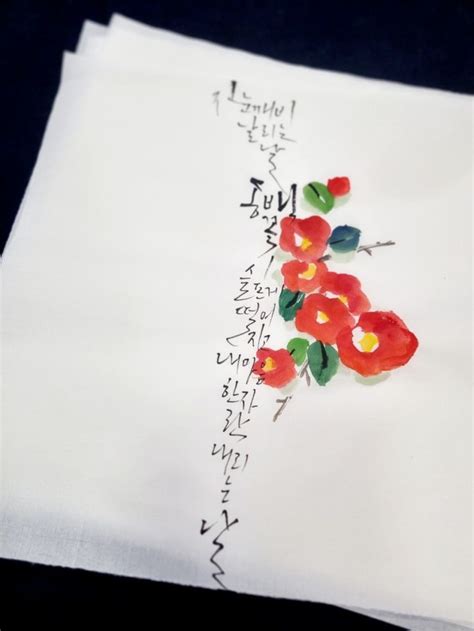 진눈깨비
날리는
날
동백
꽃
슬프게
떨어
지고
내마음
한자
락
내리
는
날